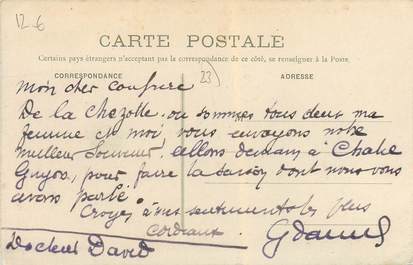 12-6
CARTE POSTALE
Certains pays étrangers n'acceptant pas la correspondance de ce côté, se renseigner à la Poste.
CORRESPONDANCE
23
ADRESSE
Mon cher confrere
De la Chezotte, ou sommes tous deux ma
femme et moi, vous envoyons notre
meilleur souvenir. Allons demain à Chatel
Guyon, pour faire la saison dont nous vous
avons parlé.
Croyez à nos sentiments les plus
cordiaux.
Docteur David